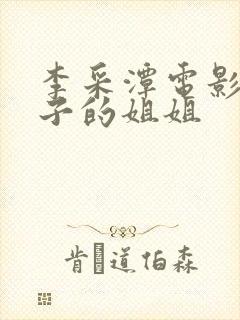 李采潭電影
子的姐姐
肯·道伯森